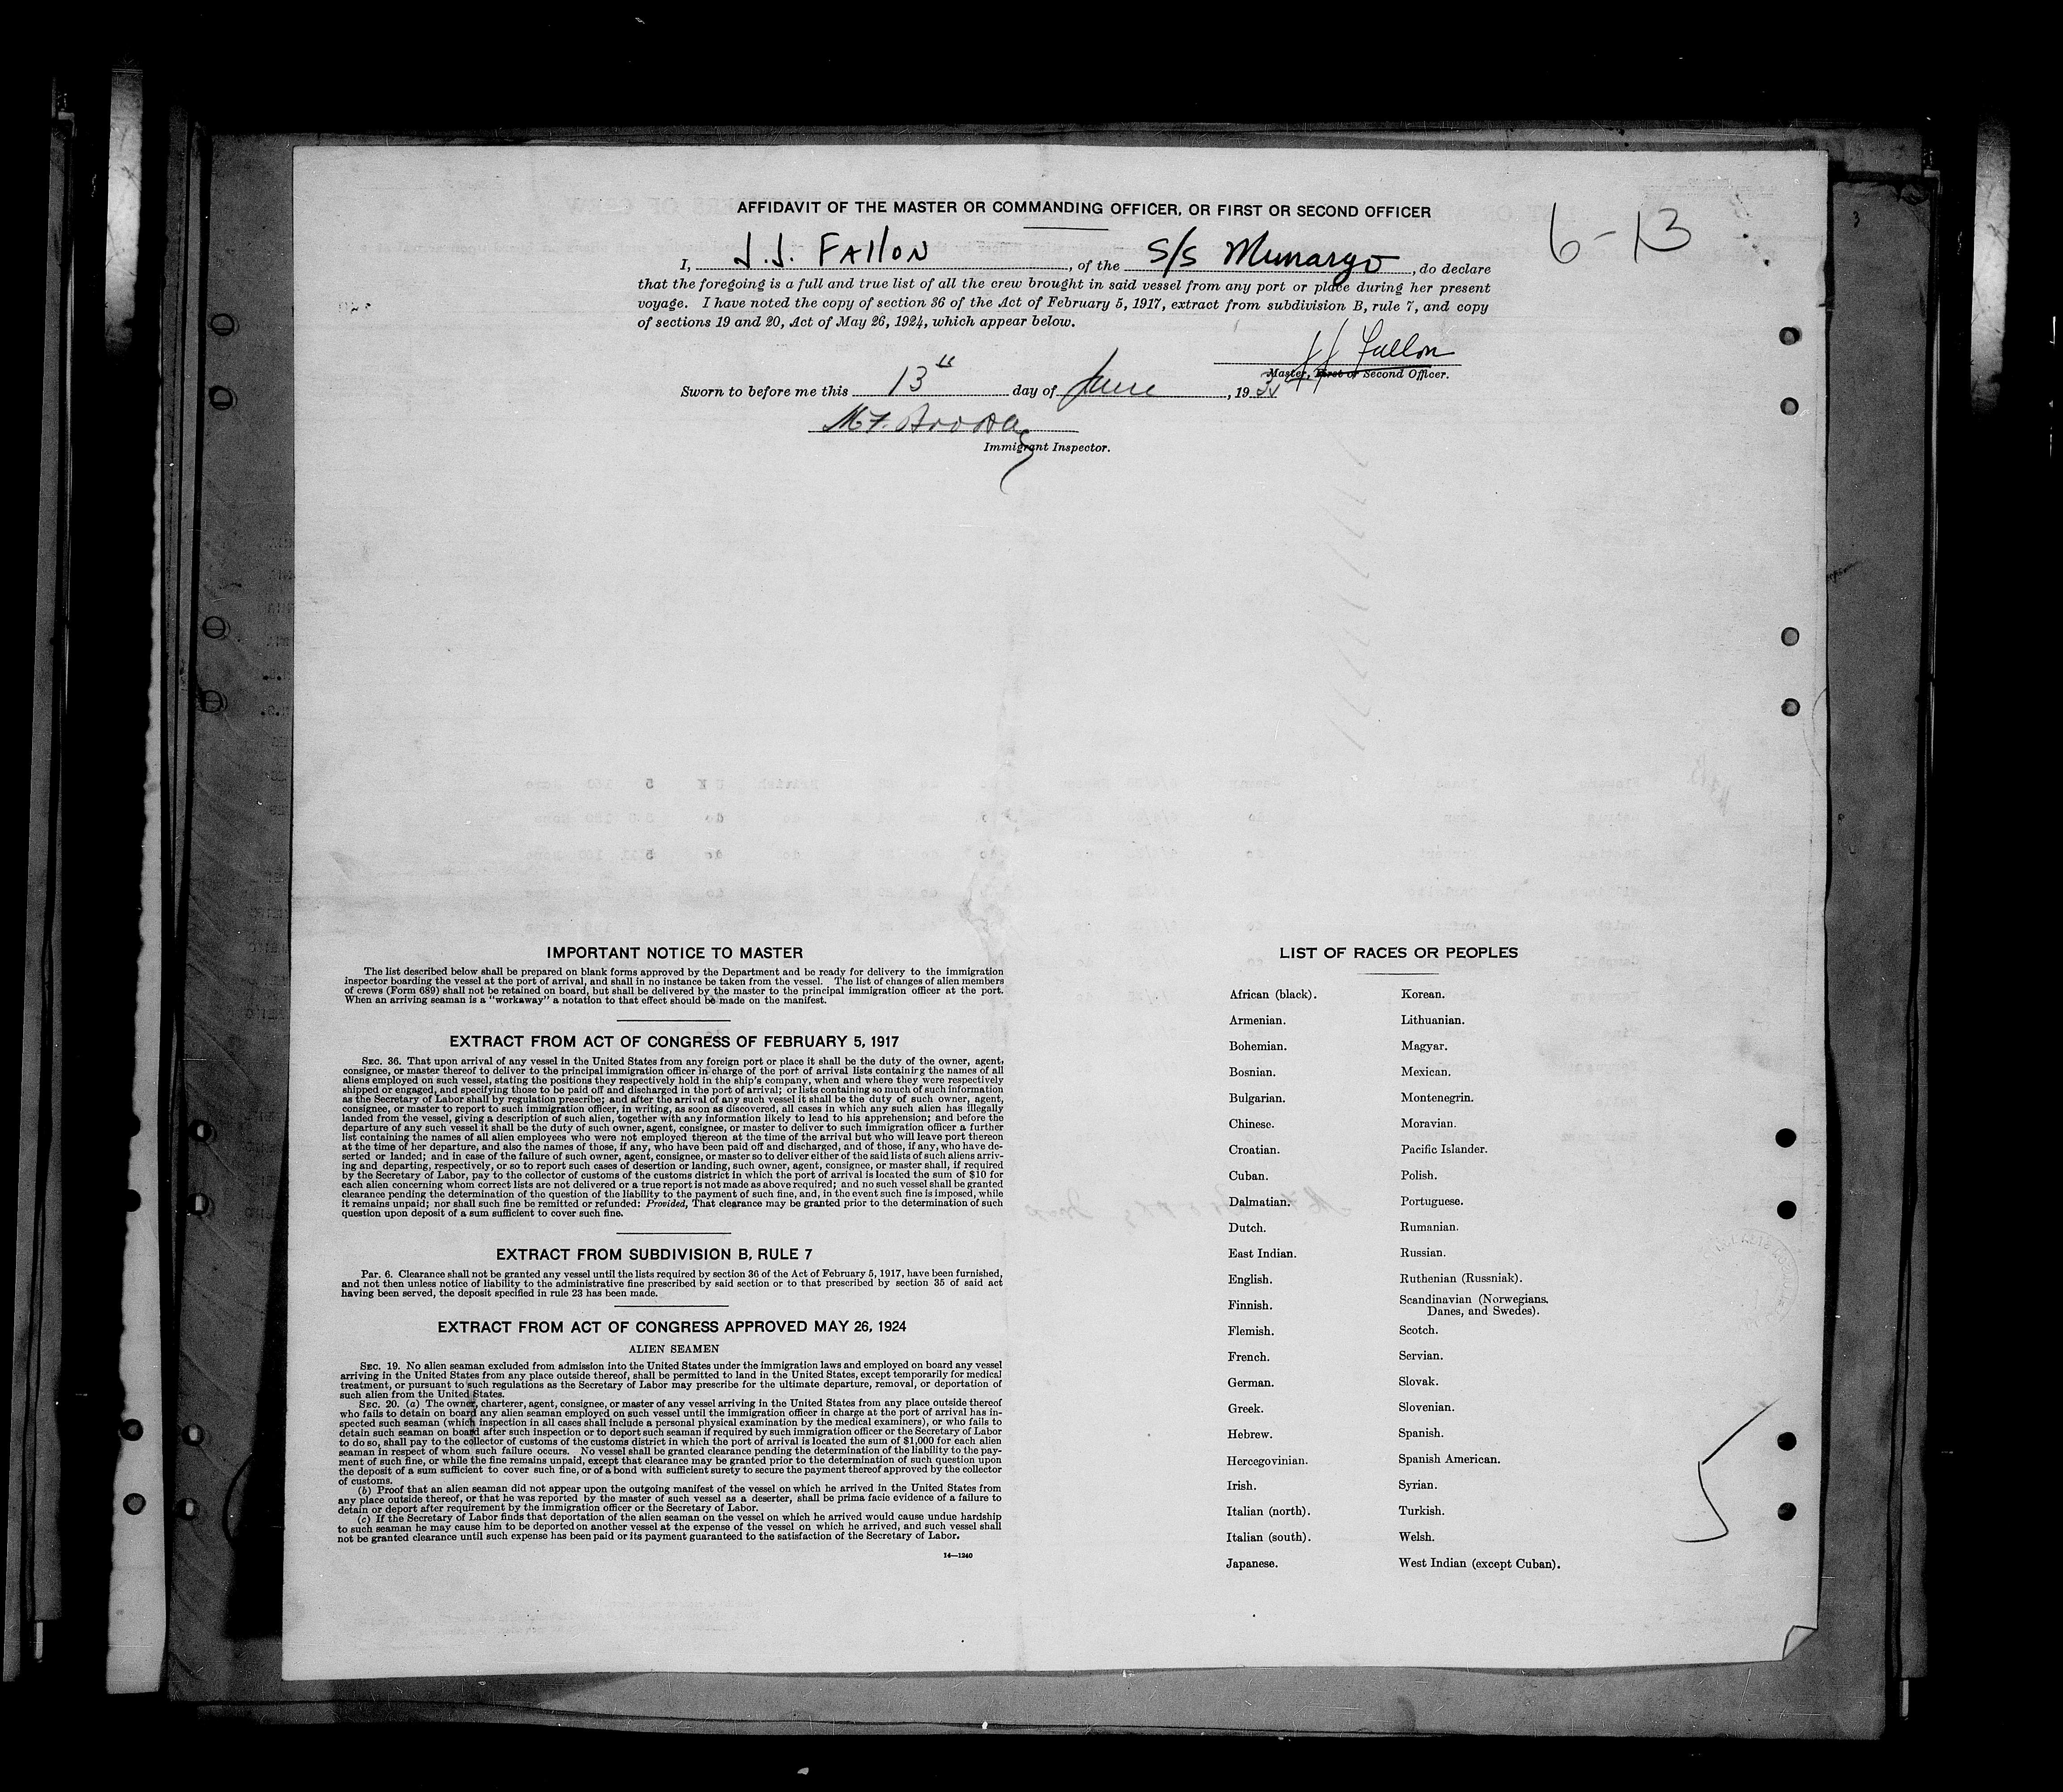 AFFIDAVIT OF THE MASTER OR COMMANDING OFFICER, OR FIRST OR SECOND OFFICER
6-13
I, J.J. FALLON, of the S/S Munargo, do declare
that the foregoing is a full and true list of all the crew brought in said vessel from any port or place during her present
voyage. I have noted the copy of section 36 of the Act of February 5, 1917, extract from subdivision B, rule 7, and copy
of sections 19 and 20, Act of May 26, 1924, which appear below.
JJ Fallon
Master, First or Second Officer.
Sworn to before me this 13th day of June, 193
Immigrant Inspector.
IMPORTANT NOTICE TO MASTER
The list described below shall be prepared on blank forms approved by the Department and be ready for delivery to the immigration
inspector boarding the vessel at the port of arrival, and shall in no instance be taken from the vessel. The list of changes of alien members
of crews (Form 689) shall not be retained on board, but shall be delivered by the master to the principal immigration officer at the port.
When an arriving seaman is a "workaway" a notation to that effect should be made on the manifest.
EXTRACT FROM ACT OF CONGRESS OF FEBRUARY 5, 1917
SEC. 36. That upon arrival of any vessel in the United States from any foreign port or place it shall be the duty of the owner, agent,
consignee, or master thereof to deliver to the principal immigration officer in charge of the port of arrival lists containing the names of all
aliens employed on such vessel, stating the positions they respectively hold in the ship's company, when and where they were respectively
shipped or engaged, and specifying those to be paid off and discharged in the port of arrival; or lists containing so much of such information
as the Secretary of Labor shall by regulation prescribe; and after the arrival of any such vessel it shall be the duty of such owner, agent,
consignee, or master to report to such immigration officer, in writing, as soon as discovered, all cases in which any such alien has illegally
landed from the vessel, giving a description of such alien, together with any information likely to lead to his apprehension; and before the
departure of any such vessel it shall be the duty of such owner, agent, consignee, or master to deliver to such immigration officer a further
list containing the names of all alien employees who were not employed thereon at the time of the arrival but who will leave port thereon
at the time of her departure, and also the names of those, if any, who have been paid off and discharged, and of those, if any, who have de-
serted or landed; and in case of the failure of such owner, agent, consignee, or master so to deliver either of the said lists of such aliens arriv-
ing and departing, respectively, or so to report such cases of desertion or landing, such owner, agent, consignee, or master shall, if required
by the Secretary of Labor, pay to the collector of customs of the customs district in which the port of arrival is located the sum of $10 for
each alien concerning whom correct lists are not delivered or a true report is not made as above required; and no such vessel shall be granted
clearance pending the determination of the question of the liability to the payment of such fine, and, in the event such fine is imposed, while
it remains unpaid; nor shall such fine be remitted or refunded: Provided, That clearance may be granted prior to the determination of such
question upon deposit of a sum sufficient to cover such fine.
EXTRACT FROM SUBDIVISION B, RULE 7
Par. 6. Clearance shall not be granted any vessel until the lists required by section 36 of the Act of February 5, 1917, have been furnished,
and not then unless notice of liability to the administrative fine prescribed by said section or to that prescribed by section 35 of said act
having been served, the deposit specified in rule 23 has been made.
EXTRACT FROM ACT OF CONGRESS APPROVED MAY 26, 1924
ALIEN SEAMEN
SEC. 19. No alien seaman excluded from admission into the United States under the immigration laws and employed on board any vessel
arriving in the United States from any place outside thereof, shall be permitted to land in the United States, except temporarily for medical
treatment, or pursuant to such regulations as the Secretary of Labor may prescribe for the ultimate departure, removal, or deportation of
such alien from the United States.
SEC. 20. (a) The owner, charterer, agent, consignee, or master of any vessel arriving in the United States from any place outside thereof
who fails to detain on board any alien seaman employed on such vessel until the immigration officer in charge at the port of arrival has in-
spected such seaman (which inspection in all cases shall include a personal physical examination by the medical examiners), or who fails to
detain such seaman on board after such inspection or to deport such seaman if required by such immigration officer or the Secretary of Labor
to do so, shall pay to the collector of customs of the customs district in which the port of arrival is located the sum of $1,000 for each alien
seaman in respect of whom such failure occurs. No vessel shall be granted clearance pending the determination of the liability to the pay-
ment of such fine, or while the fine remains unpaid, except that clearance may be granted prior to the determination of such question upon
the deposit of a sum sufficient to cover such fine, or of a bond with sufficient surety to secure the payment thereof approved by the collector
of customs.
(b) Proof that an alien seaman did not appear upon the outgoing manifest of the vessel on which he arrived in the United States from
any place outside thereof, or that he was reported by the master of such vessel as a deserter, shall be prima facie evidence of a failure to
detain or deport after requirement by the immigration officer or the Secretary of Labor.
(c) If the Secretary of Labor finds that deportation of the alien seaman on the vessel on which he arrived would cause undue hardship
to such seaman he may cause him to be deported on another vessel at the expense of the vessel on which he arrived, and such vessel shall
not be granted clearance until such expense has been paid or its payment guaranteed to the satisfaction of the Secretary of Labor.
14—1240
LIST OF RACES OR PEOPLES
African (black).
Armenian.
Bohemian.
Bosnian.
Bulgarian.
Chinese.
Croatian.
Cuban.
Dalmatian.
Dutch.
East Indian.
English.
Finnish.
Flemish.
French.
German.
Greek.
Hebrew.
Hercegovinian.
Irish.
Italian (north).
Italian (south).
Japanese.
Korean.
Lithuanian.
Magyar.
Mexican.
Montenegrin.
Moravian.
Pacific Islander.
Polish.
Portuguese.
Rumanian.
Russian.
Ruthenian (Russniak).
Scandinavian (Norwegians,
Danes, and Swedes).
Scotch.
Servian.
Slovak.
Slovenian.
Spanish.
Spanish American.
Syrian.
Turkish.
Welsh.
West Indian (except Cuban).